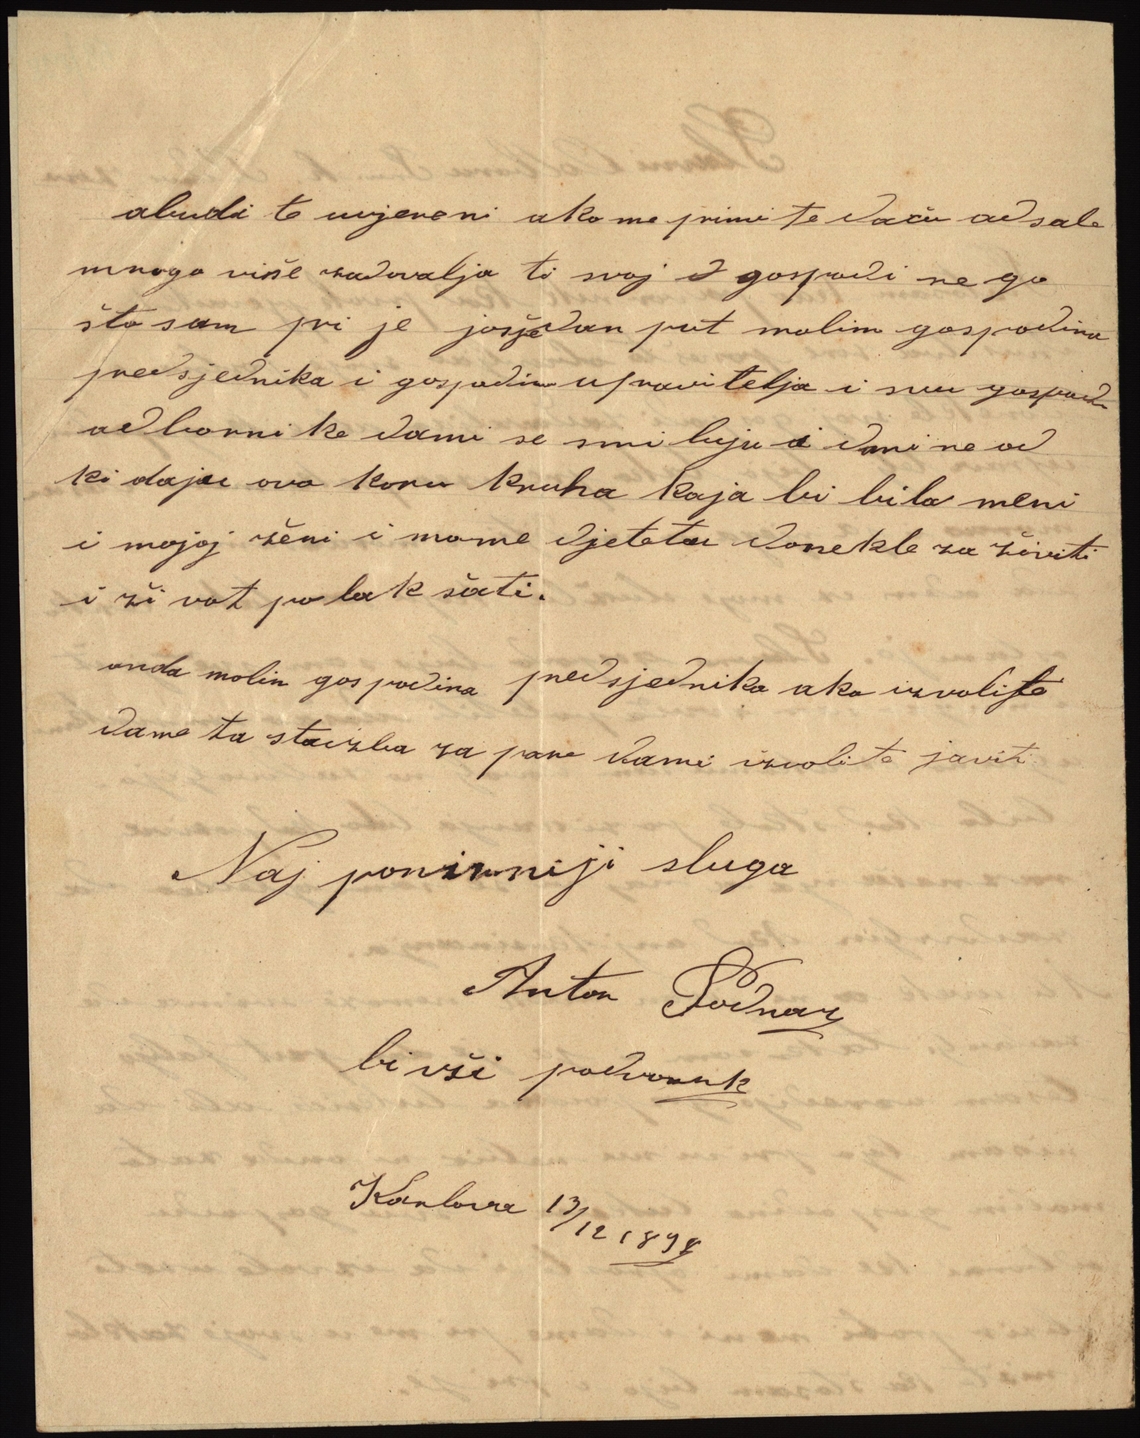 abudi te uvjereni ako me primi te daću odsale
mnogo više zadovalja ti svoj d gospodi ne go
što sam pri je još jedan put molim gospodina
predsjednika i gospodin upravitelja i svu gospodu
odborni ke dami se smi luju i dmi ne od
ki daju ovo koru kruha kaja bi bila meni
i mojoj ženi i mome djetetu donekle za živiti
i ži vot po lak šati.
onda molin gos podina predsjednika ako izvolite
dame ta služba za pane dami izvolite javiti
Naj ponizniji sluga
Anton
bi vši podvornik
Karlovac 13/12 1898